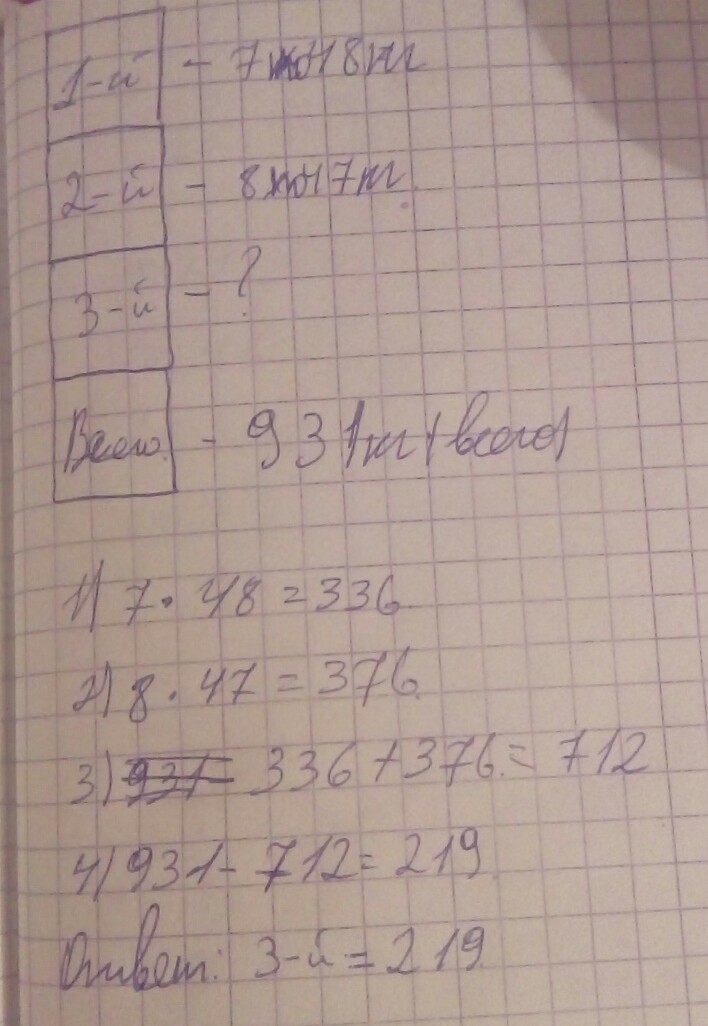 1-й - 7 48 кг
2-й - 8 47 кг.
3-й - ?
Всего. - 931 кг (всего)
1) 7 · 48 = 336
2) 8 · 47 = 376.
3) 931- 336 + 376. = 712
4) 931 - 712 = 219.
Ответ: 3-й = 219.